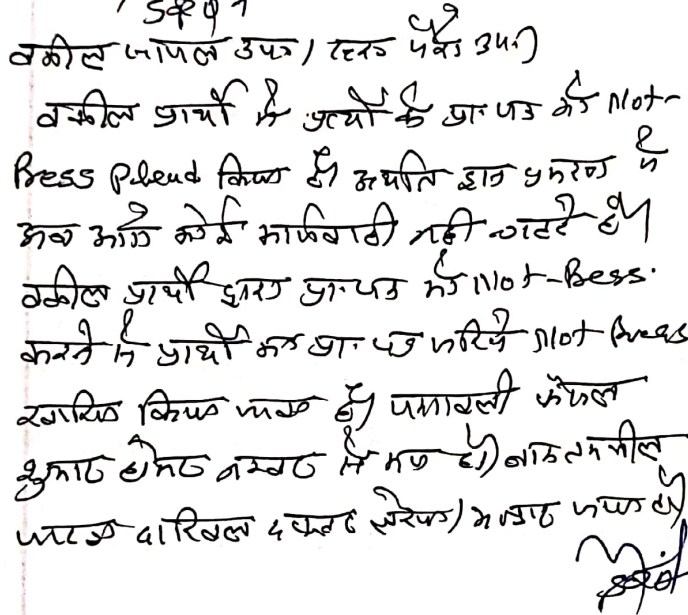 वकील प्रार्थी उप०। स्वयं उप०।
वकील प्रार्थी ने प्रार्थी के प्रा. पत्र को Not-
Press Plead किया है। अर्थात इस प्रकरण में
अब आगे कोई कार्यवाही नहीं चाहते हैं।
वकील प्रार्थी द्वारा प्रा. पत्र को Not-Press
करने से प्रार्थी का प्रा. पत्र जरिये Not Press
खारिज किया जाता है। पत्रावली फैसल
शुमार होकर नम्बर से कम हो। बाद तकमील
दाखिल दफ्तर हो।